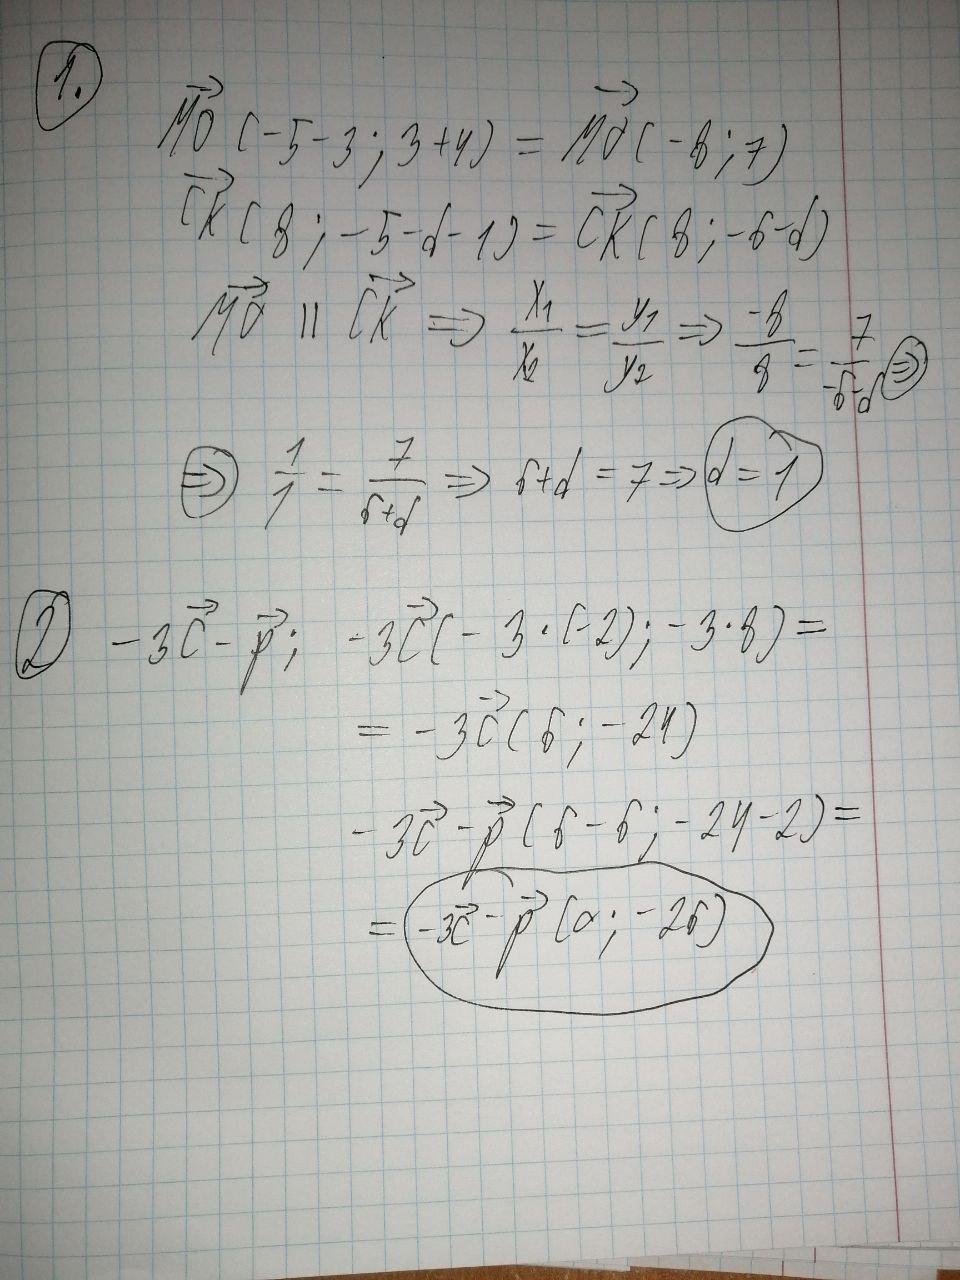 1.
MO⃗ (-5-3; 3+4) = MO⃗ (-8; 7)
CK⃗ (8; -5-d-1) = CK⃗ (8; -6-d)
MO⃗ || CK⃗ ⇒ x₁/x₂ = y₁/y₂ ⇒ -8/8 = 7/-6-d ⇒
⇒ 1/1 = 7/6+d ⇒ 6+d = 7 ⇒ d = 1
2 -3c⃗ - p⃗; -3c⃗ (-3·(-2); -3·8) =
= -3c⃗ (6; -24)
-3c⃗ - p⃗ (6-6; -24-2) =
= -3c⃗ - p⃗ (0; -26)